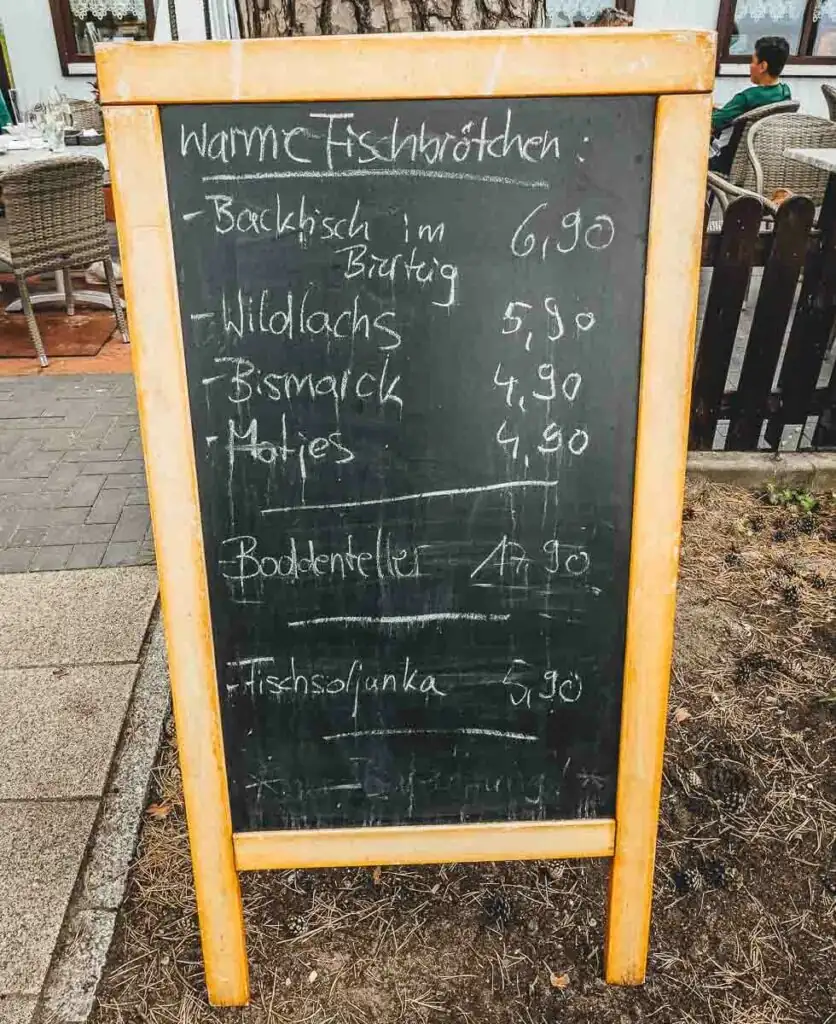 Warme Fischbrötchen :
- Backfisch im 6,90
Bierteig
- Wildlachs 5,90
- Bismarck 4,90
- Matjes 4,90
- Boddenteller 17,90
- Fischsoljanka 5,90